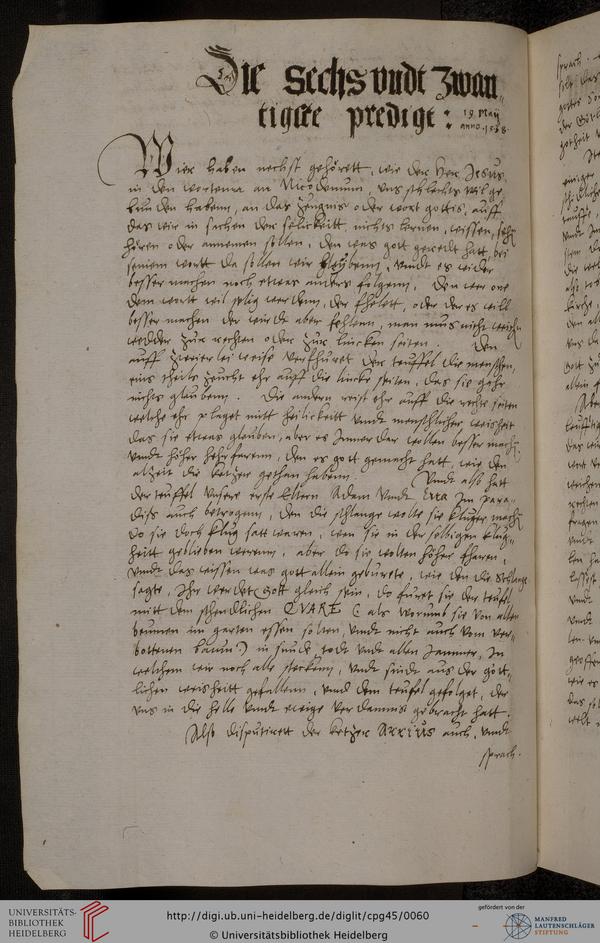 Die Sechs vndt zwan
tigste predigt: 19. Maij
anno. 1538.
Wier haben nechst gehörett, wie der Her Jesus
in den wortenn an Nicodemum, vns schlechts wil ge
bunden habenn, an das zeugnis oder wort gottis, auff
das wir in sachen der selickeitt, nichts lernen, wissen,
hören oder annemen sollen, den was gott geredt hatt, bei
seinem wortt da sollen wir bleybenn, vundt es weider
besser machen noch etwas anders folgenn, den wer one
dem wort wil selig werdenn, der fhelett, oder der es will
besser machen der wirdt aber fehlenn, man mus nicht
wedder zur rechten oder zur lincken seiten. Den
auff zweierlei weise verfhuret der teuffel die menschen,
eins theils zeucht ehr auff die lincke seiten, das sie gahr
nichts glaubenn. Die andern reist ehr auff die rechte seiten
welche ehr plaget mitt heilickeitt vundt menschlicher weisheit
das sie etwas glauben, aber es Jmmerdar wollen besser
vundt höher herfharenn, den es gott gemacht hatt, wie den
alzeit die ketzer gethan habenn. Vundt also hatt
der teuffel vnsere erste Eltern Adam vundt Eva Jm para-
diss auch betrogenn, den die schlange wolte sie kluger
do sie doch klug satt waren, wen sie in der selbigen klug-
heitt geblieben werenn, aber do sie wolten höher fharen,
vundt das wissen was gott allein geburete, wie den die Schlange
sagte, Jhr werdet Gott gleich sein, do furet sie der teufel
mitt dem schendlichen QVARE (als Worumb sie von allen
beumen im garten essen solten, vundt nicht auch vom ver-
bottenen baum?) in sunde, todt vndt allen Jammer, Jn
welchem wir noch alle steckenn, vundt seindt aus der gött-
lichen weisheitt gefallenn, vnnd dem teufel gefolget, der
vns in die helle vundt ewige verdamnis gebracht hatt.
Also disputirett der ketzer Arrius auch, vundt
sprach.
UNIVERSITÄTS-
BIBLIOTHEK
HEIDELBERG
http://digi.ub.uni-heidelberg.de/diglit/cpg45/0060
© Universitätsbibliothek Heidelberg
gefördert von der
MANFRED
LAUTENSCHLÄGER
STIFTUNG